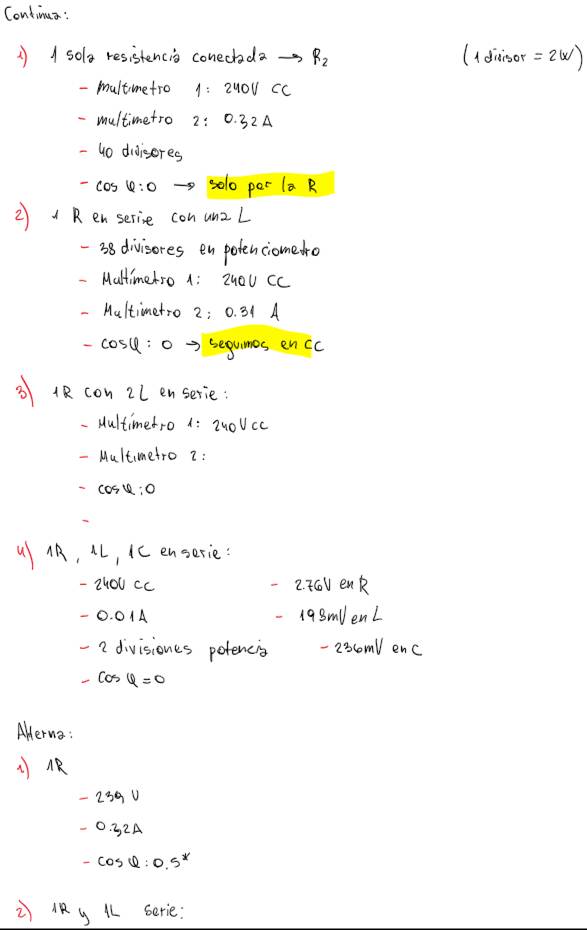 Continua:
1) 1 sola resistencia conectada → R2 (1 divisor = 2W)
- Multimetro 1: 240V CC
- multimetro 2: 0.32A
- 40 divisores
- cos φ: 0 → solo por la R
2) 1 R en serie con una L
- 38 divisores en potenciometro
- Multímetro 1: 240V CC
- Multimetro 2: 0.31 A
- cosφ: 0 → seguimos en CC
3) 1R con 2L en serie:
- Multímetro 1: 240Vcc
- Multimetro 2:
- cosφ: 0
-
4) 1R, 1L, 1C en serie:
- 240V cc - 2.76V en R
- 0.01A - 198mV en L
- 2 divisiones potencia - 236mV en C
- Cos φ = 0
Alterna:
1) 1R
- 239 V
- 0.32A
- cos φ: 0.5*
2) 1R y 1L serie: